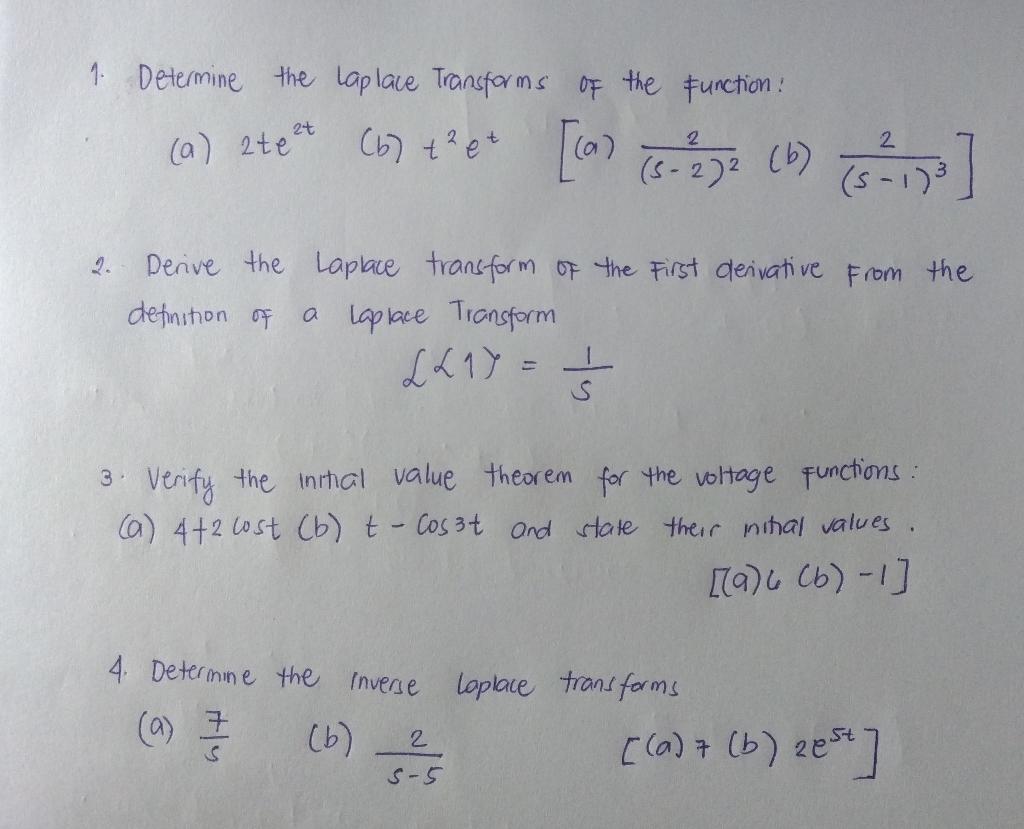 1. Determine the Laplace Transforms of the function:
(a) 2te^{2t} (b) t^2 e^t [(a) \frac{2}{(s-2)^2} (b) \frac{2}{(s-1)^3}]
2. Derive the Laplace transform of the First derivative From the
definition of a Laplace Transform
ℒ{1} = \frac{1}{s}
3. Verify the initial value theorem for the voltage functions:
(a) 4+2 cost (b) t - cos3t and state their initial values.
[(a) 6 (b) -1]
4. Determine the inverse laplace transforms
(a) \frac{7}{s} (b) \frac{2}{s-5} [(a) 7 (b) 2e^{5t}]